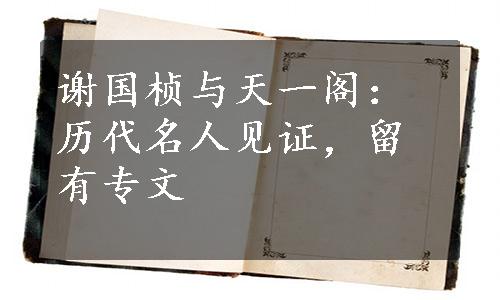 谢国桢与天一阁：
历代名人见证，留
有专文